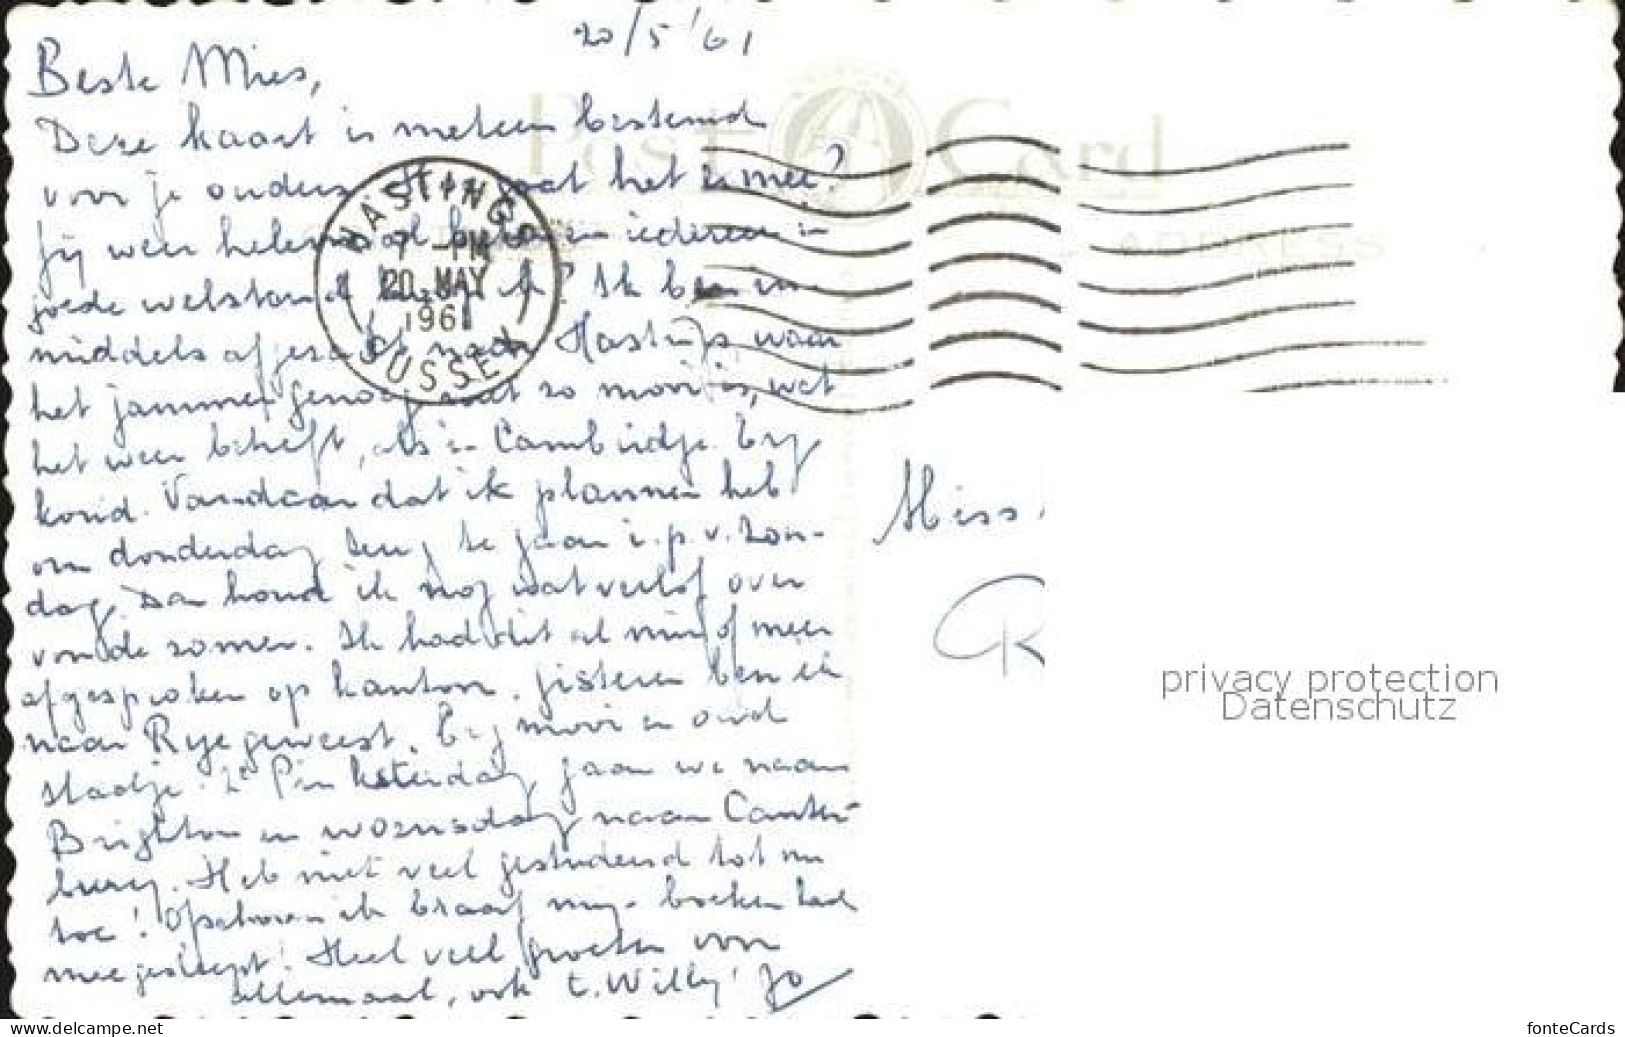 20/5 '61
Beste Mies,
Deze kaart is meteen bestemd
voor je ouders. Hoe gaat het er mee?
Jij weer helemaal beter en iedereen in
goede welstand hoop ik? Ik ben in-
middels afgezakt naar Hastings waar
het jammer genoeg niet zo mooi is, wat
het weer betreft, als in Cambridge. Erg
koud. Vandaar dat ik plannen heb
om donderdag terug te gaan i.p.v. zon-
dag. Dan houd ik nog wat verlof over
van de zomer. Ik had dit al min of meer
afgesproken op kantoor. Gisteren ben ik
naar Rye geweest. Erg mooi en oud
stadje. 2e Pinksterdag gaan we naar
Brighton en woensdag naar Canter-
bury. Heb niet veel gestudeerd tot nu
toe! Ofschoon ik braaf mijn boeken had
meegesleept! Heel veel groeten voor
allemaal, ook t. Willy! Jo
Post Card
ADDRESS
HASTINGS
7 - PM
20 MAY
1961
SUSSEX
Miss
privacy protection
Datenschutz
www.delcampe.net
fonteCards